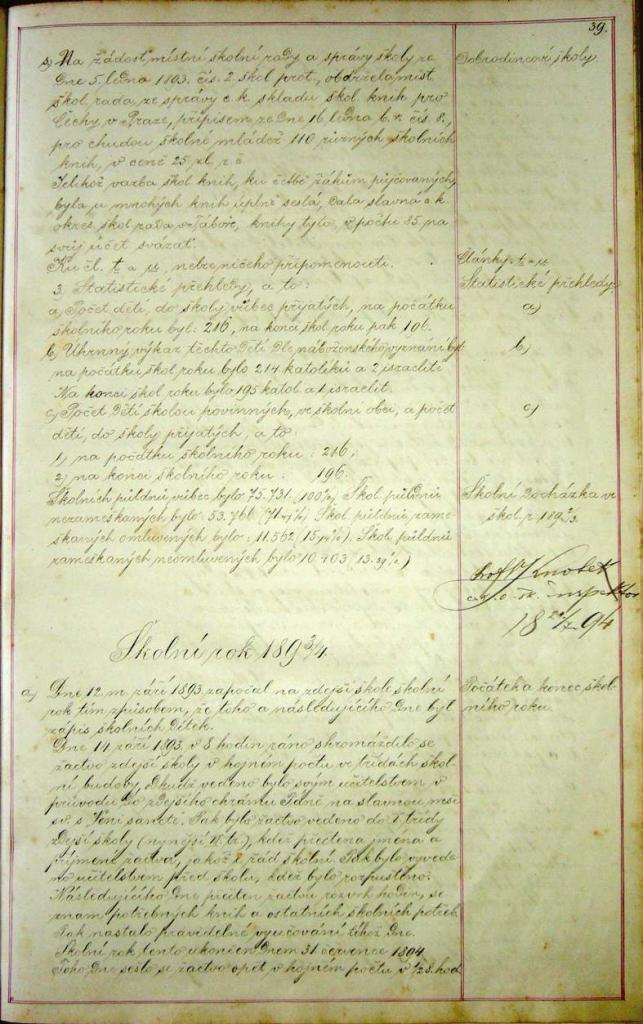 39.
s) Na žádost místní školní rady a správy školy ze
Dobrodincové školy.
dne 5. ledna 1893. čís. 2. škol. prot., obdržela míst.
škol. rada, ze správy c. k. skladu škol. knih pro
Čechy v Praze, přípisem ze dne 16 ledna t. r. čís. 8.,
pro chudou školní mládež 110 různých školních
knih, v ceně 25 zl. r. č.
Jelikož vazba škol. knih, ku četbě žákům půjčovaných
byla u mnohých knih úplně sešlá, dala slavná c. k.
okres. škol. rada v Táboře, knihy tyto, v počtu 85 na
svůj účet svázat.
Články: t = u
Ku čl. t = u, nebe ničeho připomenouti.
3. Statistické přehledy, a to:
Statistické přehledy.
a) Počet dětí, do školy vůbec přijatých, na počátku
a)
školního roku byl: 216, na konci škol. roku pak 196.
b) Úhrnný výkaz těchto dětí dle náboženského vyznání byl
b)
na počátku škol. roku bylo 214 katolíků a 2 israelité
Na konci škol. roku bylo 195 katol. a 1 israelit.
c) Počet dětí školou povinných, ve školní obci, a počet
c)
dětí, do školy přijatých, a to:
1) na počátku školního roku: 216,
2) na konci školního roku: 196.
Školních půldnů vůbec bylo 75.731. (100%) Škol. půldnů
Školní docházka ve
nezameškaných bylo: 53.766 Škol. půldnů zame-
škol. r. 1892/3.
škaných omluvených bylo: 11.562 Škol. půldnů
zameškaných neomluvených bylo 10.403 (13.%)
Knotek
c. k. o. šk. inspektor
18 94
Školní rok 1893/4.
a) Dne 12. m. září 1893 započal na zdejší škole školní
Počátek a konec škol-
rok tím způsobem, že toho a následujícího dne byl
ního roku.
zápis školních dítek.
Dne 14 září 1893, v 8 hodin ráno shromáždilo se
žactvo zdejší školy v hojném počtu ve třídách škol-
ní budovy, odkudž vedeno bylo svým učitelstvem v
průvodu do zdejšího chrámu Páně na slavnou mši
sv. s Veni sancte. Pak bylo žactvo vedeno do I. třídy
zdejší školy (nynější tř.), kdež přečtena jména a
příjmení žactva, jakož i řád školní. Pak bylo vyvede-
no učitelstvem před školu, kdež bylo rozpuštěno.
Následujícího dne přečten žactvu rozvrh hodin, se-
znam potřebných knih a ostatních školních potřeb.
Pak nastalo pravidelné vyučování téhož dne.
Školní rok tento ukončen dnem 31 července 1894
Toho dne sešlo se žactvo opět v hojném počtu v 1/2 8. hod.